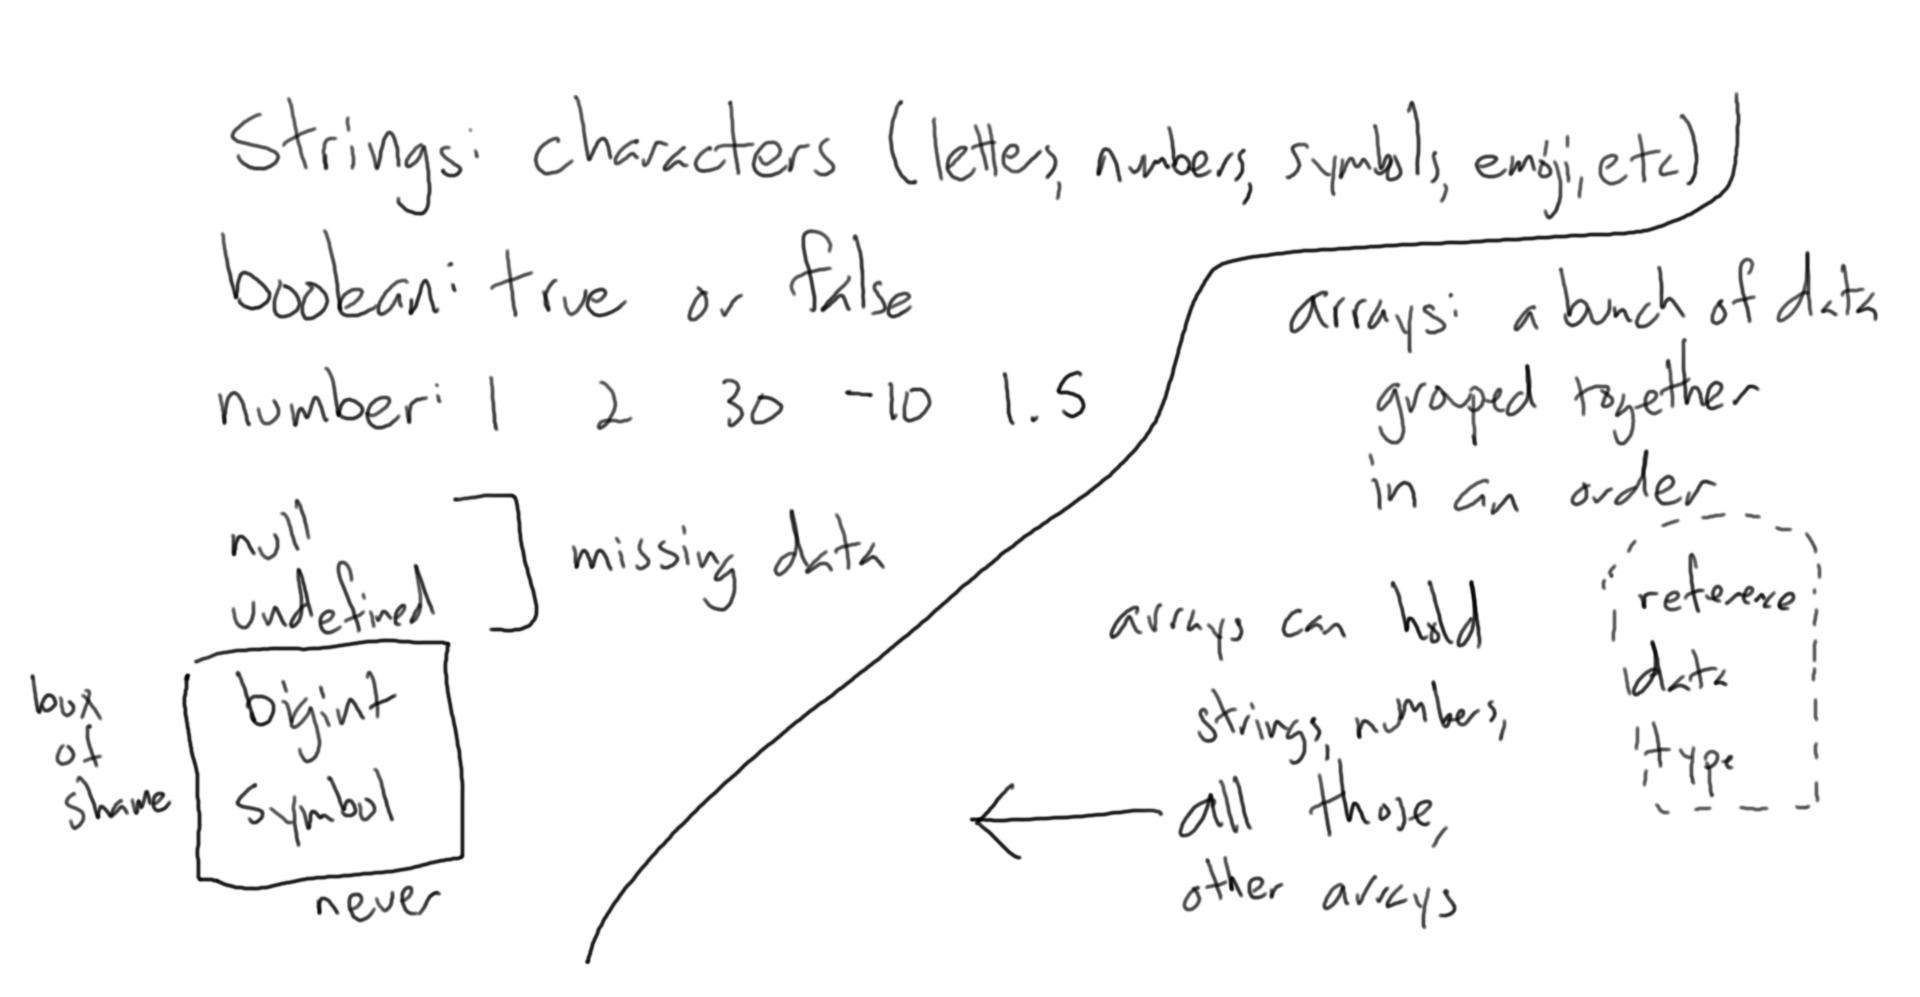 Strings: characters (letters, numbers, symbols, emoji, etc)
boolean: true or false
number: 1 2 30 -10 1.5
null
undefined
missing data
box
of
shame
bigint
symbol
never
arrays: a bunch of data
grouped together
in an order
arrays can hold
strings, numbers,
all those,
other arrays
reference
data
type